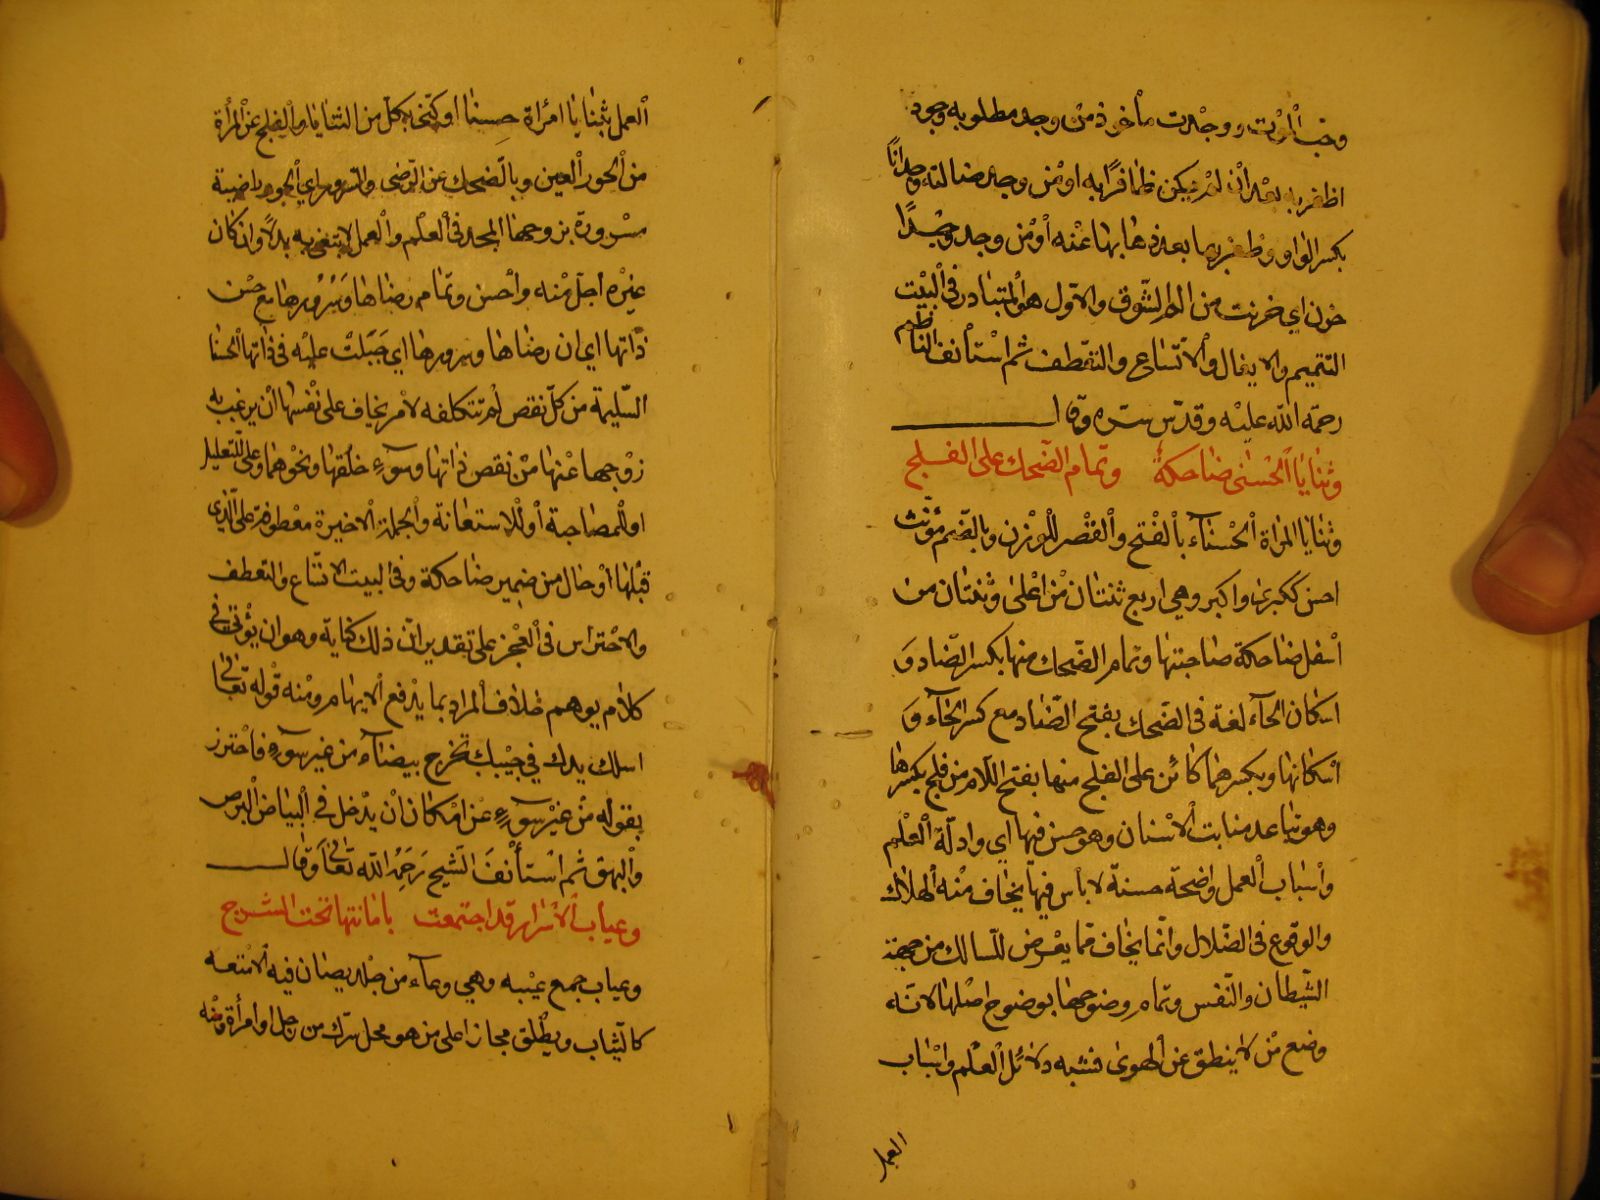 وجب الموت ووجدت مأخوذ من وجد مطلوبه وجود
اظفر به بعد ان لم يكن ظافرا به او من وجد ضالته وجدانًا
بكسر الواو وظفر بها بعد ذهابها عنه أو من وجد وجدًا
حزن اي حزنت من الم الشوق والاول هو المتبادر في البيت
التتميم والايغال والاتساع والتعطف ثم استأنف الناظم
رحمة الله عليه وقدس سره وقال
وثنايا الحسنى ضاحكة وتمام الضحك على الفلج
وثنايا المراة الحسناء بالفتح والقصر للوزن وبالضم مؤنث
احسن ككبرى واكبر وهي اربع ثنتان من اعلى وثنتان من
أسفل ضاحكة صاحبتها وتمام الضحك منها بكسر الضاد و
اسكان الحاء لغة في الضحك بفتح الضاد مع كسر الحاء و
اسكانها وبكسرهما كائن على الفلج منها بفتح اللام من فلج بكسرها
وهو تباعد منابت الاسنان وهو حسن فيها اي وادلة العلم
وأسباب العمل واضحة حسنة لا بأس فيها يخاف منه الهلاك
والوقوع في الضلال وانما يخاف مما يعرض للسالك من جهة
الشيطان والنفس وتمام وضوحها بوضوح اصلها لانه
وضع من لا ينطق عن الهوى فشبه دلائل العلم واسباب
العمل
العمل بثنايا امرأة حسنا او كنى بكل من الثنايا والفلج عن المرأة
من الحور العين وبالضحك عن الرضى والسرور اي الحور راضية
مسرورة بزوجها المجد في العلم والعمل لا تبتغي به بدلا وان كان
غيره اجل منه واحسن وتمام رضاها وسرورها مع حسن
ذاتها اي ان رضاها وسرورها اي جبلت عليه في ذاتها الحسنا
السليمة من كل نقص لم تتكلفه لأمر يخاف على نفسها ان يرغب به
زوجها عنها من نقص ذاتها وسوء خلقها ونحوهما وعلى للتعليل
او للمصاحبة أو للاستعانة والجملة الاخيرة معطوفة على الذي
قبلها أو حال من ضمير ضاحكة وفي البيت الاتساع والتعطف
والاحتراس في العجز على تقدير ان ذلك كناية وهو ان يؤتى في
كلام يوهم خلاف المراد بما يدفع الايهام ومنه قوله تعالى
اسلك يدك في جيبك تخرج بيضاء من غير سوء فاحترز
بقوله من غير سوء عن امكان ان يدخل في البياض البرص
والبهق ثم استأنف الشيخ رحمه الله تعالى وقال
وعياب الاسرار قد اجتمعت بامانتها تحت الشرج
وعياب جمع عيبه وهي وعاء من جلد يصان فيه الامتعه
كالثياب ويطلق مجازا على من هو محل سرك من رجل او امرأة ومنه